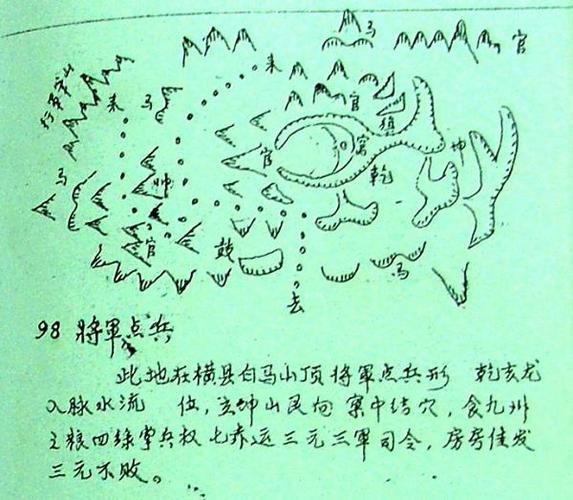 马
官
来
马
来
官
马
帅
官
官
窝
乾
坤
鼓
马
去
98 将軍点兵
此地在横县白马山顶将軍点兵形 乾亥龙
入脉水流 位,立坤山艮向 窝中结穴,食九州
之粮四绿掌兵权七赤运三元三軍司令,房房佳发
三元不败。